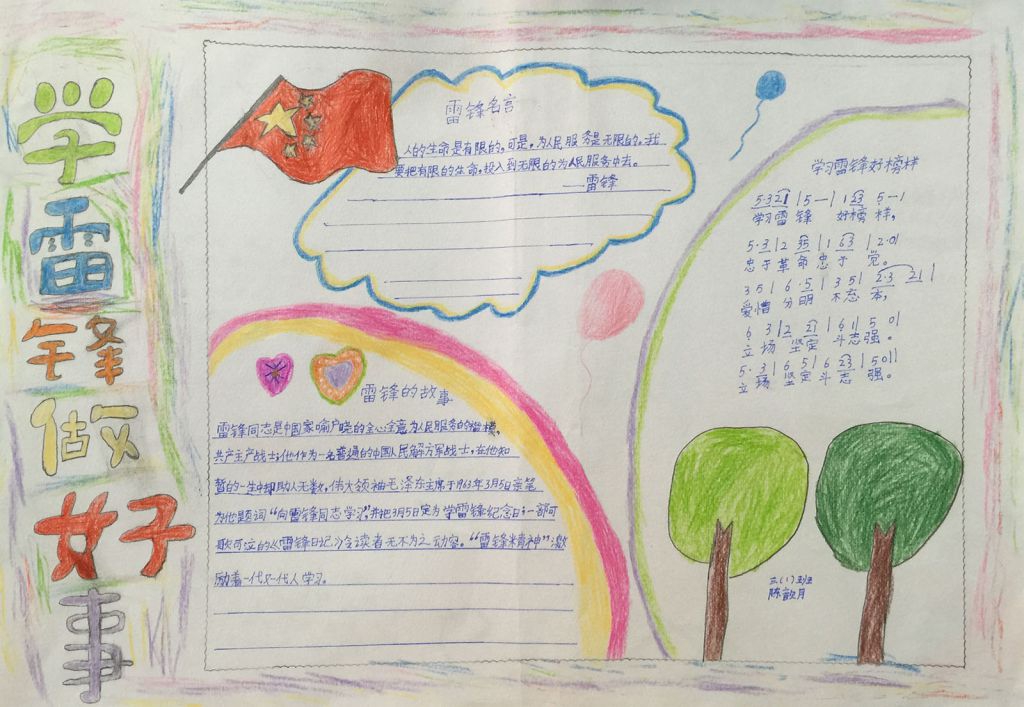 学雷锋做好事
雷锋名言
人的生命是有限的,可是,为人民服务是无限的。我
要把有限的生命,投入到无限的为人民服务中去。
——雷锋
学习雷锋好榜样
5·3 2 1 | 5 — | 1 2 3 5 — |
学习雷 锋 好榜 样,
5·3 | 2 3 5 | 1 6 3 | 2·0 |
忠于革命忠于 党。
3 5 | 6·5 | 3 5 | 2·3 2 1 |
爱憎 分明 不忘 本,
6 3 | 2 2 1 | 6 1 | 5 0 |
立场 坚定 斗志强。
5·3 | 6 5 | 6 2 3 | 5 0 ||
立场 坚定斗 志 强。
雷锋的故事
雷锋同志是中国家喻户晓的全心全意为人民服务的楷模,
共产主产战士;他作为一名普通的中国人民解方军战士,在他短
暂的一生中却助人无数,伟大领袖毛泽东主席于1963年3月5日亲笔
为他题词“向雷锋同志学习”,并把3月5日定为学雷锋纪念日;一部可
歌可泣的《雷锋日记》令读者无不为之动容。“雷锋精神”激
励着一代又一代人学习。
三(1)班
陈歆月